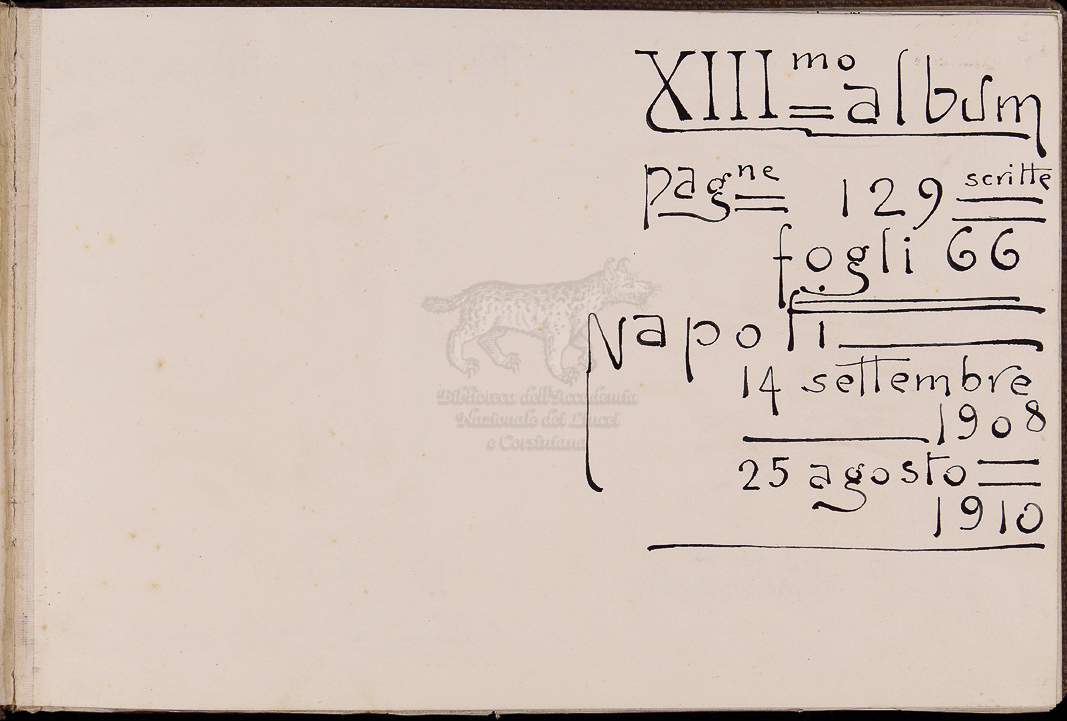 XIII mo album
pag ne 129 scritte
fogli 66
Napoli
14 settembre
1908
25 agosto
1910
Biblioteca dell'Accademia
Nazionale dei Lincei
e Corsiniana